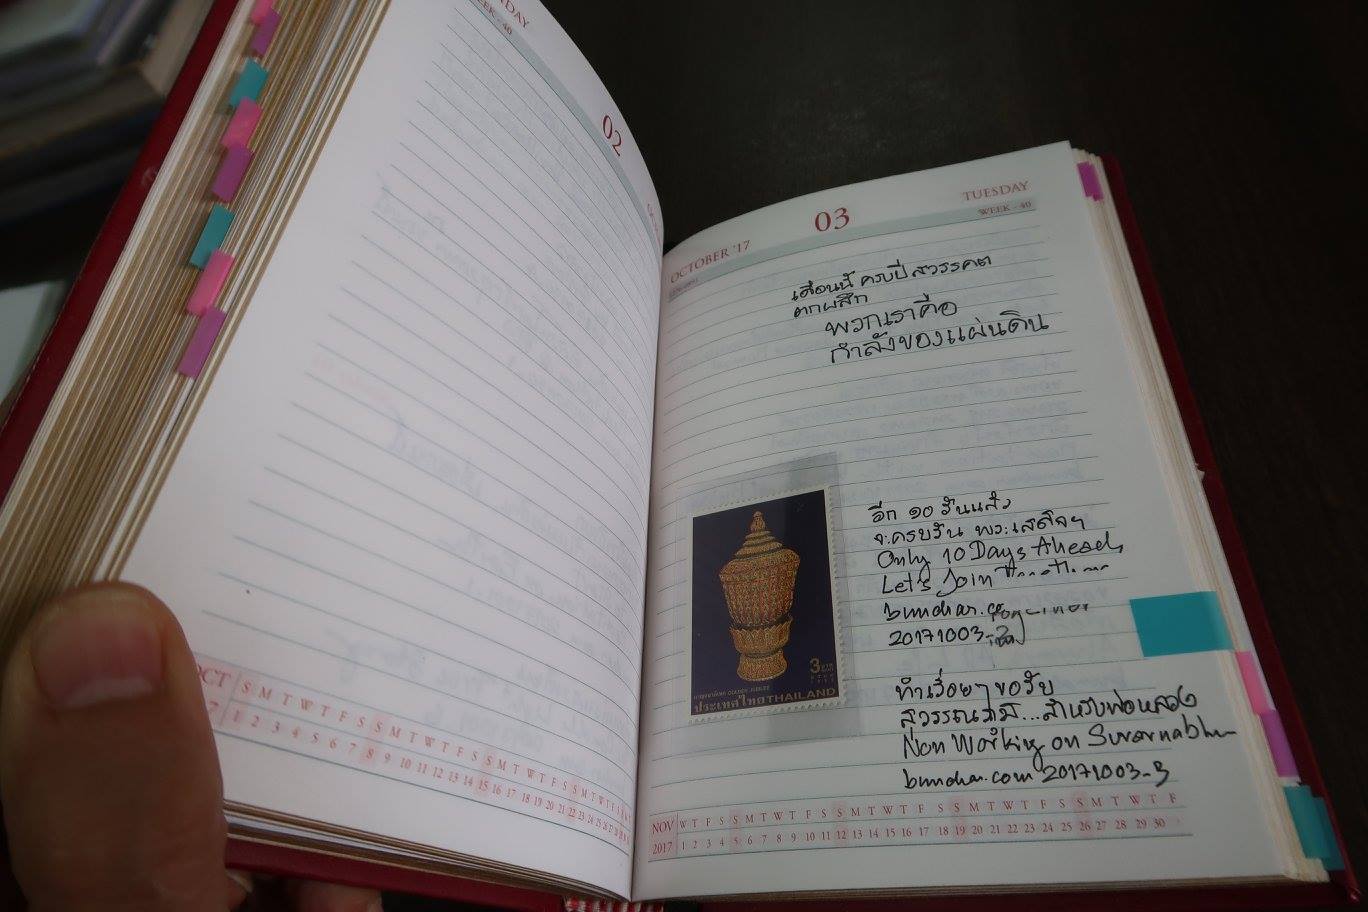 02
OCTOBER '17
03
TUESDAY
WEEK - 40
เดือนนี้ ครบปี สวรรคต
ตกผลึก
พวกเราคือ
กำลังของแผ่นดิน
อีก ๑๐ วันแล้ว
จะครบวัน พระเสด็จฯ
Only 10 Days Ahead,
Let's Join Together
bunchar.com
20171003-2
3 บาท
GOLDEN JUBILEE
ประเทศไทย THAILAND
ทำเรื่อยๆ ขอรับ
สุวรรณภูมิ...สำหรับพ่อหลวง
Non Working on Suvarnabhum
bunchar.com 20171003-3
OCT S M T W T F S S M T W T F S S M T W T F S S M T
1 2 3 4 5 6 7 8 9 10 11 12 13 14 15 16 17 18 19 20 21 22 23 24 25 26 27
NOV W T F S S M T W T F S S M T W T F S S M T W T F S S M T W T F
2017 1 2 3 4 5 6 7 8 9 10 11 12 13 14 15 16 17 18 19 20 21 22 23 24 25 26 27 28 29 30